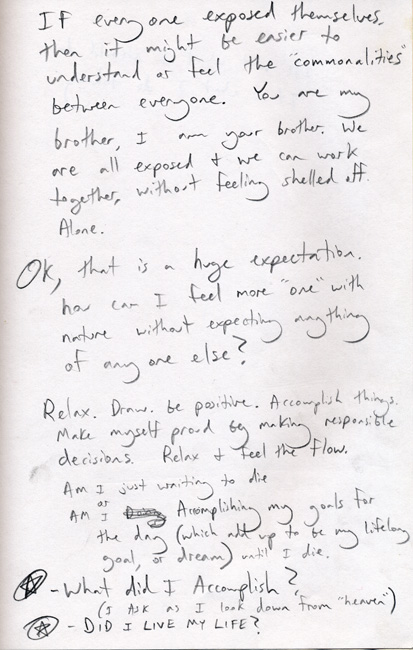 If everyone exposed themselves,
then it might be easier to
understand or feel the "commonalities"
between everyone. You are my
brother, I am your brother. We
are all exposed & we can work
together, without feeling shelled off.
Alone.
OK, that is a huge expectation.
how can I feel more "one" with
nature without expecting anything
of any one else?
Relax. Draw. be positive. Accomplish things.
Make myself proud by making responsible
decisions. Relax & feel the flow.
Am I just waiting to die
or
AM I Accomplishing my goals for
the day (which add up to be my lifelong
goal, or dream) until I die.
- What did I Accomplish?
(I Ask as I look down from "heaven")
- DID I LIVE MY LIFE?